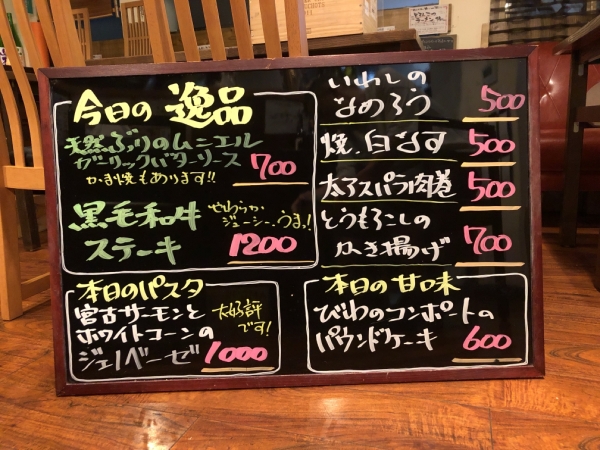 今日の逸品
天然ぶりのムニエル
ガーリックバターソース 700
かま焼もあります!!
黒毛和牛
ステーキ 1200
やわらか
ジューシー、うまっ!
いわしの
なめろう 500
焼、白なす 500
太アスパラ肉巻 500
とうもろこしの
かき揚げ 700
本日のパスタ
宮古サーモンと
ホワイトコーンの
ジェノベーゼ 1000
大好評
です!
本日の甘味
びわのコンポートの
パウンドケーキ 600